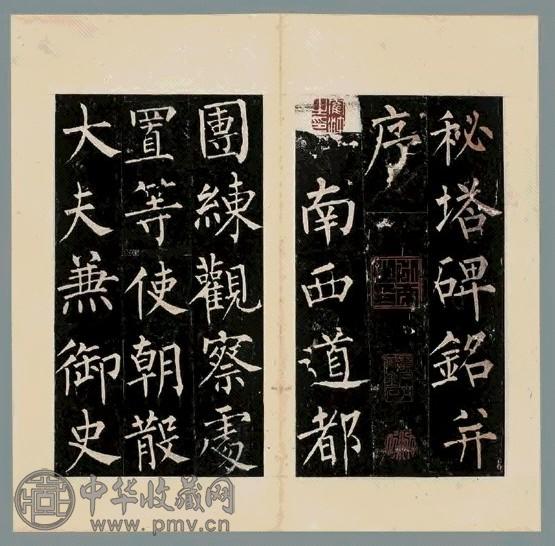 秘塔碑銘并
序
南西道都
團練觀察處
置等使朝散
大夫兼御史
中华收藏网
www.pmv.cn